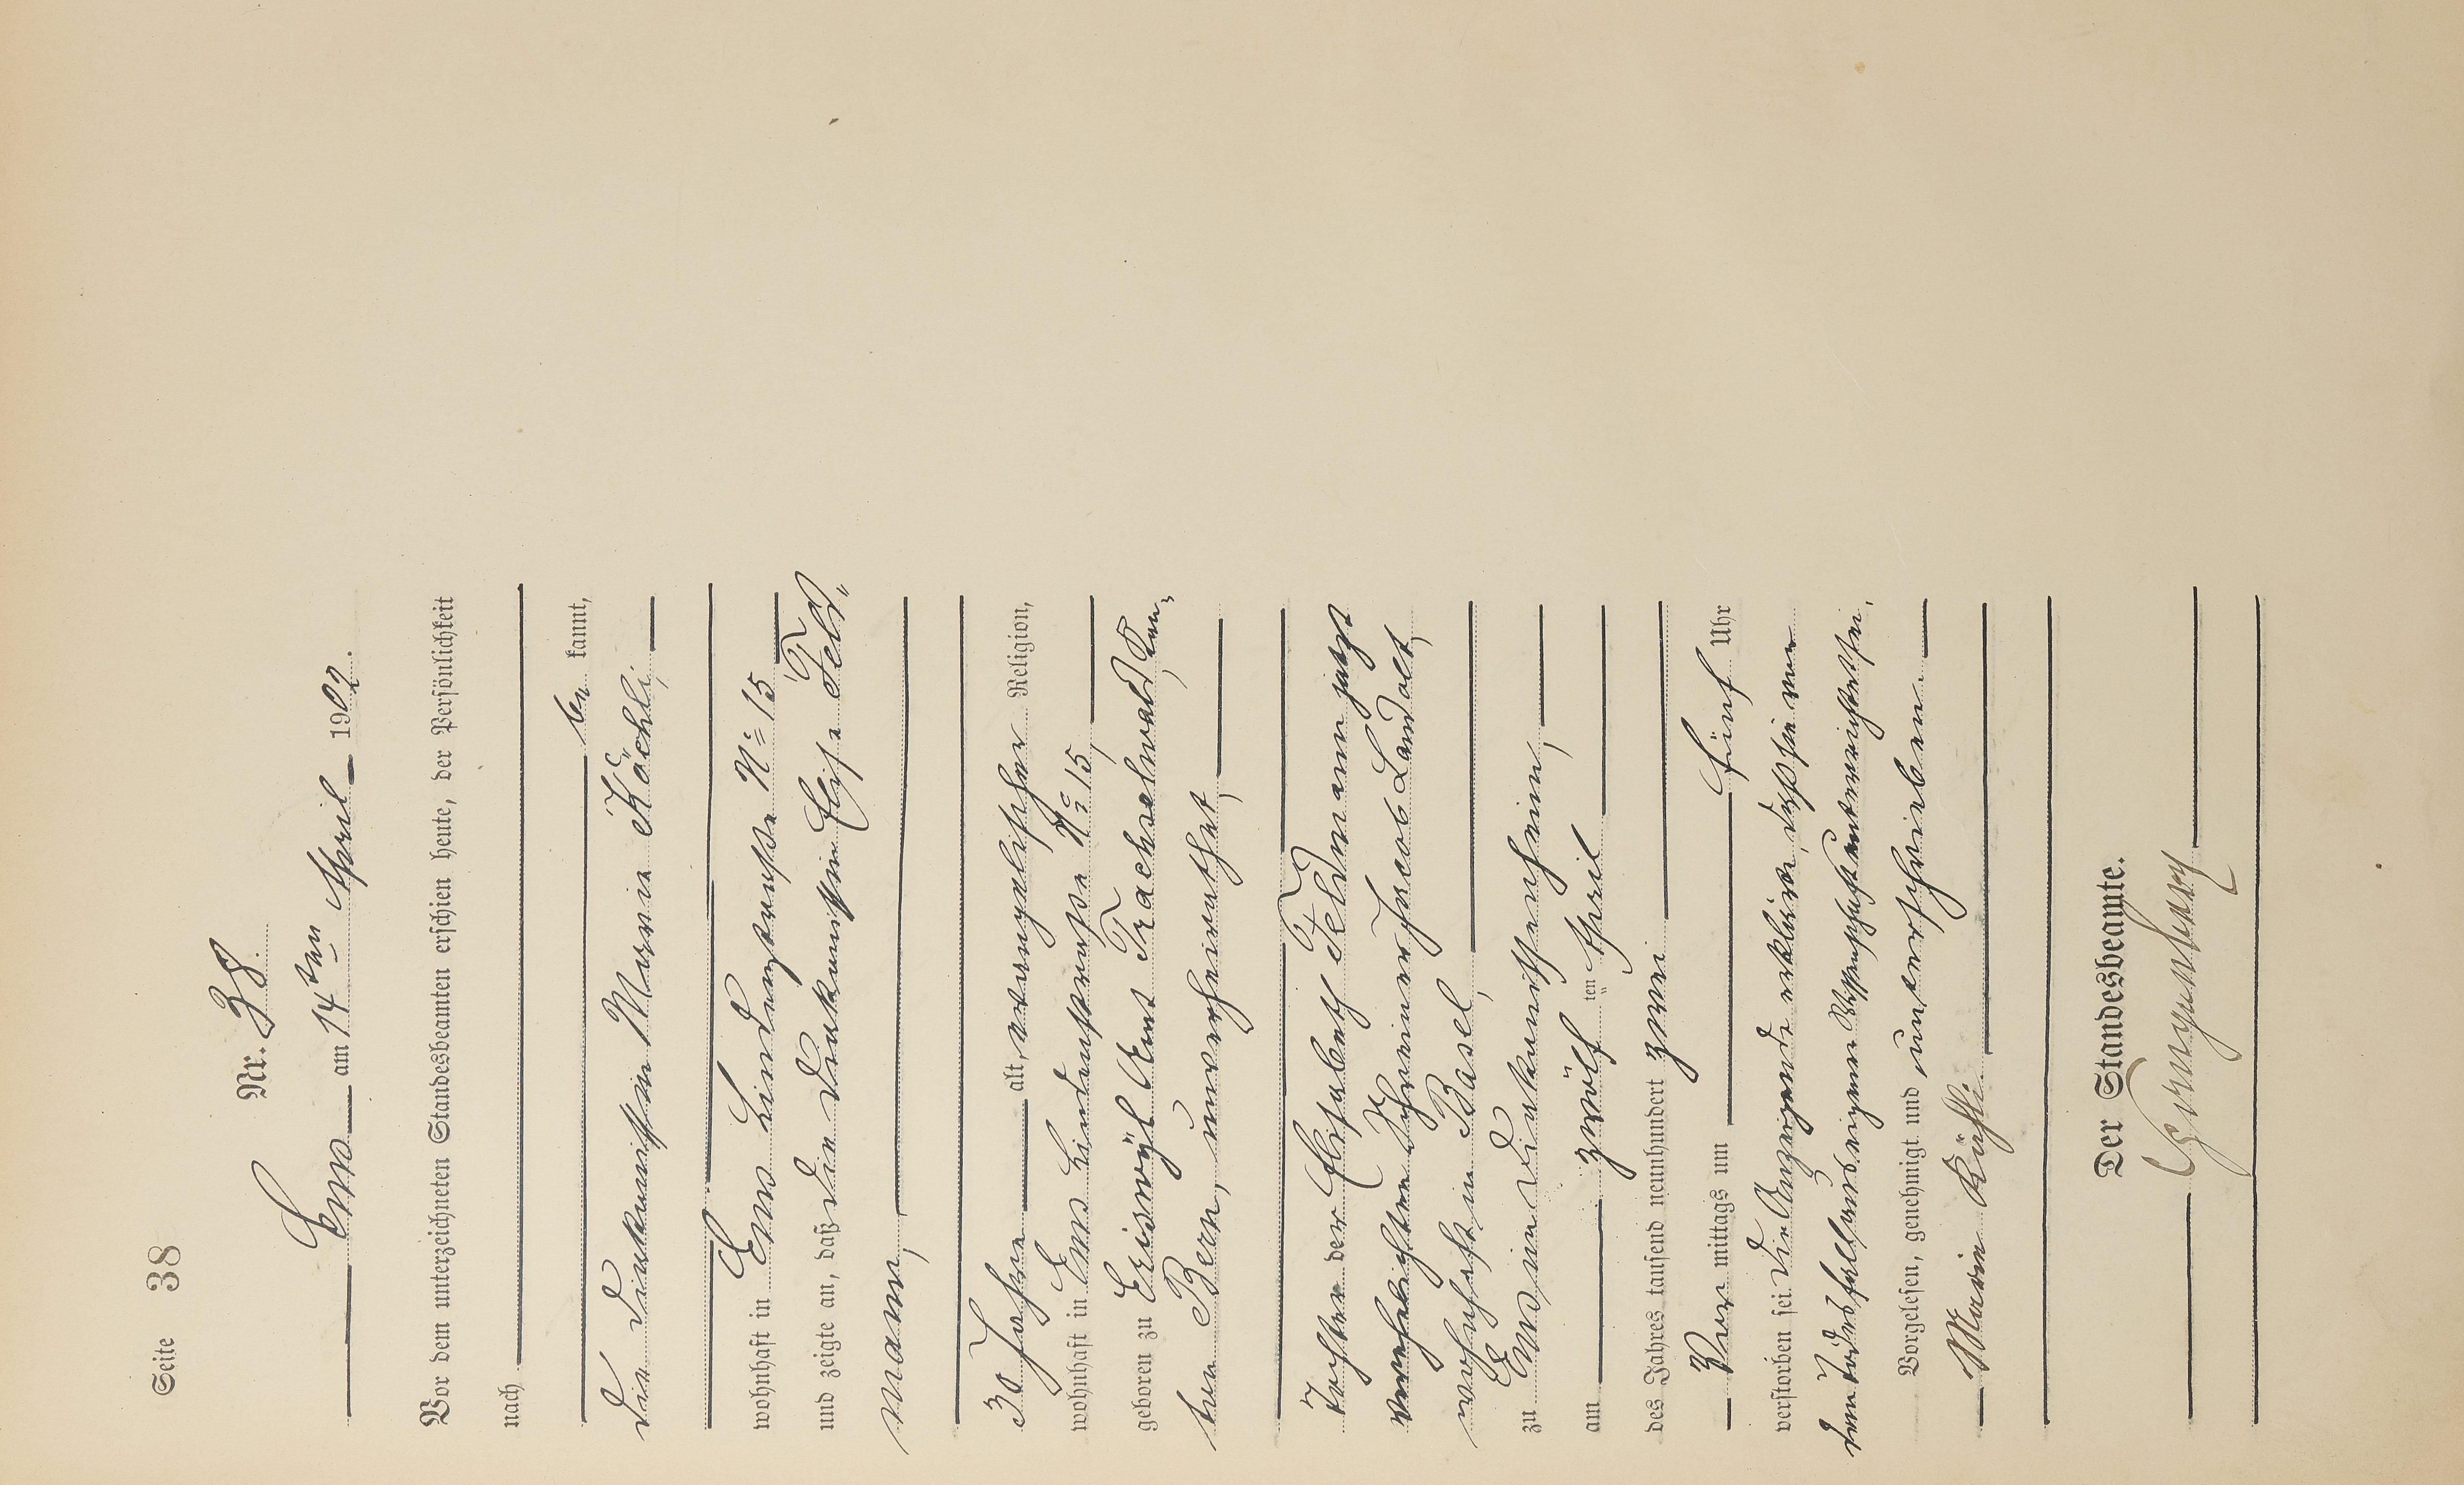 Seite 38
Nr. 38.
Ems am 14ten April 1902.
Vor dem unterzeichneten Standesbeamten erschien heute, der Persönlichkeit
nach
be kannt,
die Diakonissin Maria Köchli,
wohnhaft in Ems Lindenstraße No 15
und zeigte an, daß die Diakonissin Elise Feld-
mann,
30 Jahre alt, evangelischer Religion,
wohnhaft in Ems Lindenstraße No 15,
geboren zu Eriswyl Amt Trachselwald, Kan-
ton Bern, unverheirathet,
Tochter der Elisabeth Feldmann jetzt
verehelichten Schreiner Jacob Landolt,
wohnhaft in Basel,
zu Ems im Diakonissenheim,
am zwölf ten April
des Jahres tausend neunhundert zwei
Vor mittags um fünf Uhr
verstorben sei. Die Anzeigende erklärte, daß sie von
dem Todesfall aus eigener Wissenschaft unterrichtet sei.
Vorgelesen, genehmigt und unterschrieben.
Maria
Der Standesbeamte.